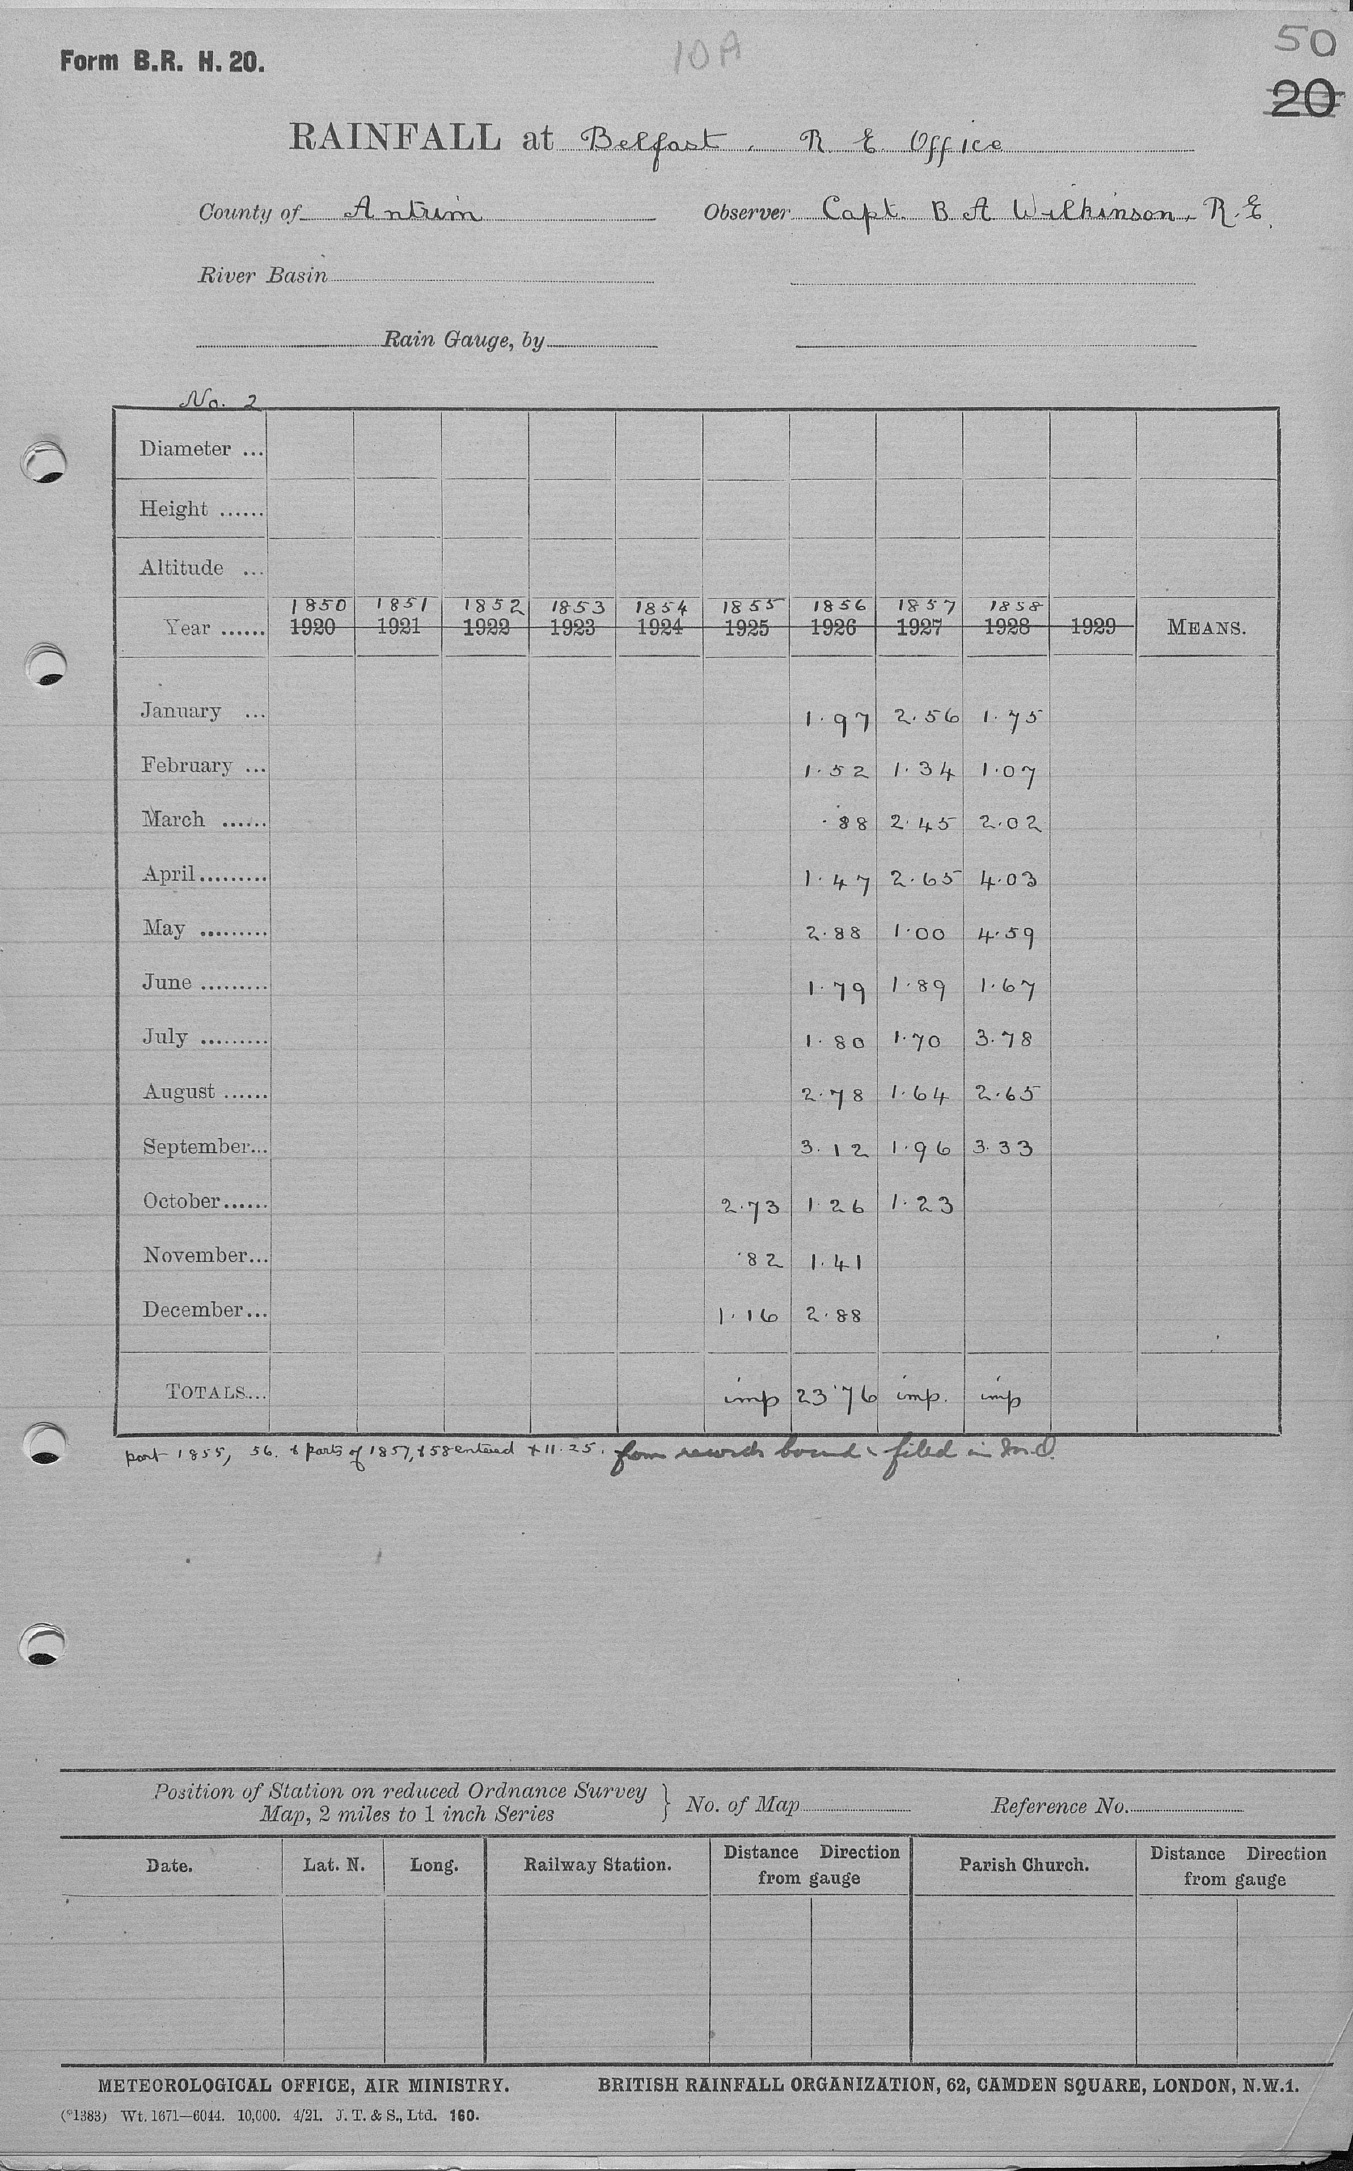 10A
50
Form B.R. H. 20.
20
RAINFALL at Belfast. R E Office
County of Antrim Observer Capt. B A Wilkinson, R.E.
River Basin
Rain Gauge, by
No. 2
Diameter ...
Height ......
Altitude ...
1850 1851 1852 1853 1854 1855 1856 1857 1858
Year ...... 1920 1921 1922 1923 1924 1925 1926 1927 1928 1929 MEANS.
January ... 1.97 2.56 1.75
February ... 1.52 1.34 1.07
March ...... .88 2.45 2.02
April......... 1.47 2.65 4.03
May ......... 2.88 1.00 4.59
June ......... 1.79 1.89 1.67
July ......... 1.80 1.70 3.78
August ...... 2.78 1.64 2.65
September... 3.12 1.96 3.33
October...... 2.73 1.26 1.23
November... .82 1.41
December... 1.16 2.88
TOTALS... imp 23.76 imp. imp
part 1855, 56. & parts of 1857, & 58 entered 11.25. from records bound & filed in M.O.
Position of Station on reduced Ordnance Survey
Map, 2 miles to 1 inch Series } No. of Map Reference No.
Date. Lat. N. Long. Railway Station. Distance Direction from gauge Parish Church. Distance Direction from gauge
METEOROLOGICAL OFFICE, AIR MINISTRY. BRITISH RAINFALL ORGANIZATION, 62, CAMDEN SQUARE, LONDON, N.W.1.
(*1383) Wt. 1671—6044. 10,000. 4/21. J. T. & S., Ltd. 160.